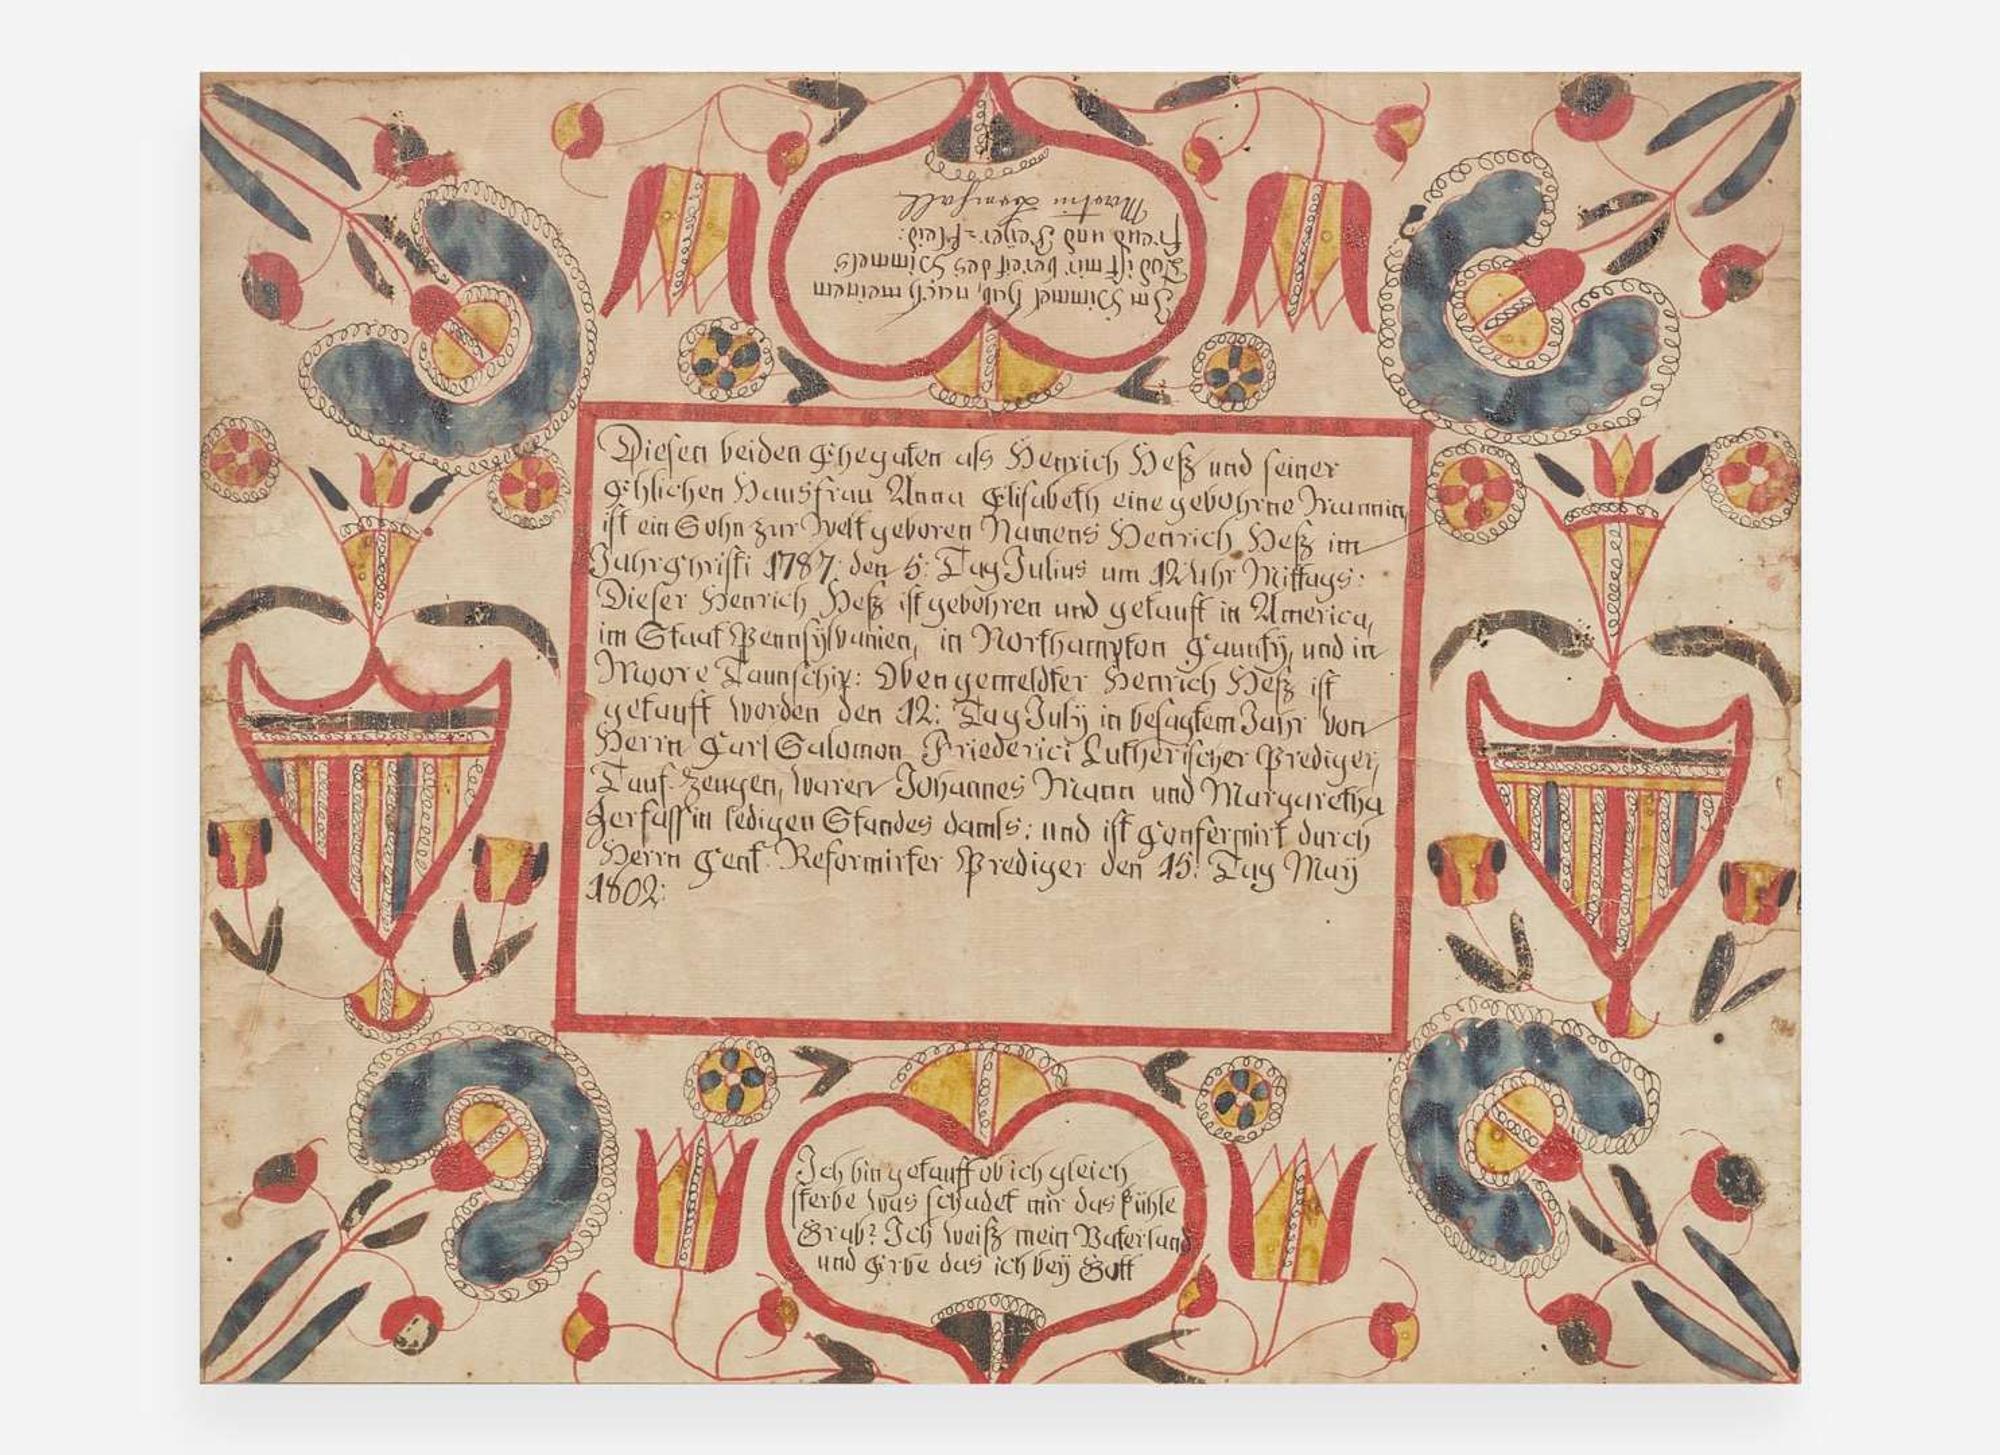 Im Himmel hab, nach meinem
Tod ist mir bereit des Himmels
Freud und Feyer=Kleid:
Martin
Diesen beiden Ehegaten als Henrich Heß und seiner
Ehlichen Hausfrau Anna Elisabeth eine gebohrne
ist ein Sohn zur Welt geboren Namens Henrich Heß im
Jahr Christi 1787: den 5: Tag Julius um 12 Uhr Mittags:
Dieser Henrich Heß ist gebohren und getauft in America,
im Staat Pennsylvanien, in Northampton Caunty, und in
Moore Taunschip: Oben gemeldter Henrich Heß ist
getauft worden den 12: Tag July in besagtem Jahr von
Herrn Carl Salomon Friederici Lutherischer Prediger,
Tauf-Zeugen, waren Johannes Mann und Margaretha
Zerfassin ledigen Standes damls: und ist Confermirt durch
Herrn Reformirter Prediger den 15: Tag May
1802:
Ich bin getauff ob ich gleich
sterbe was schadet mir das kühle
Grab? Ich weiß mein Vaterland
und Erbe das ich bey Gott